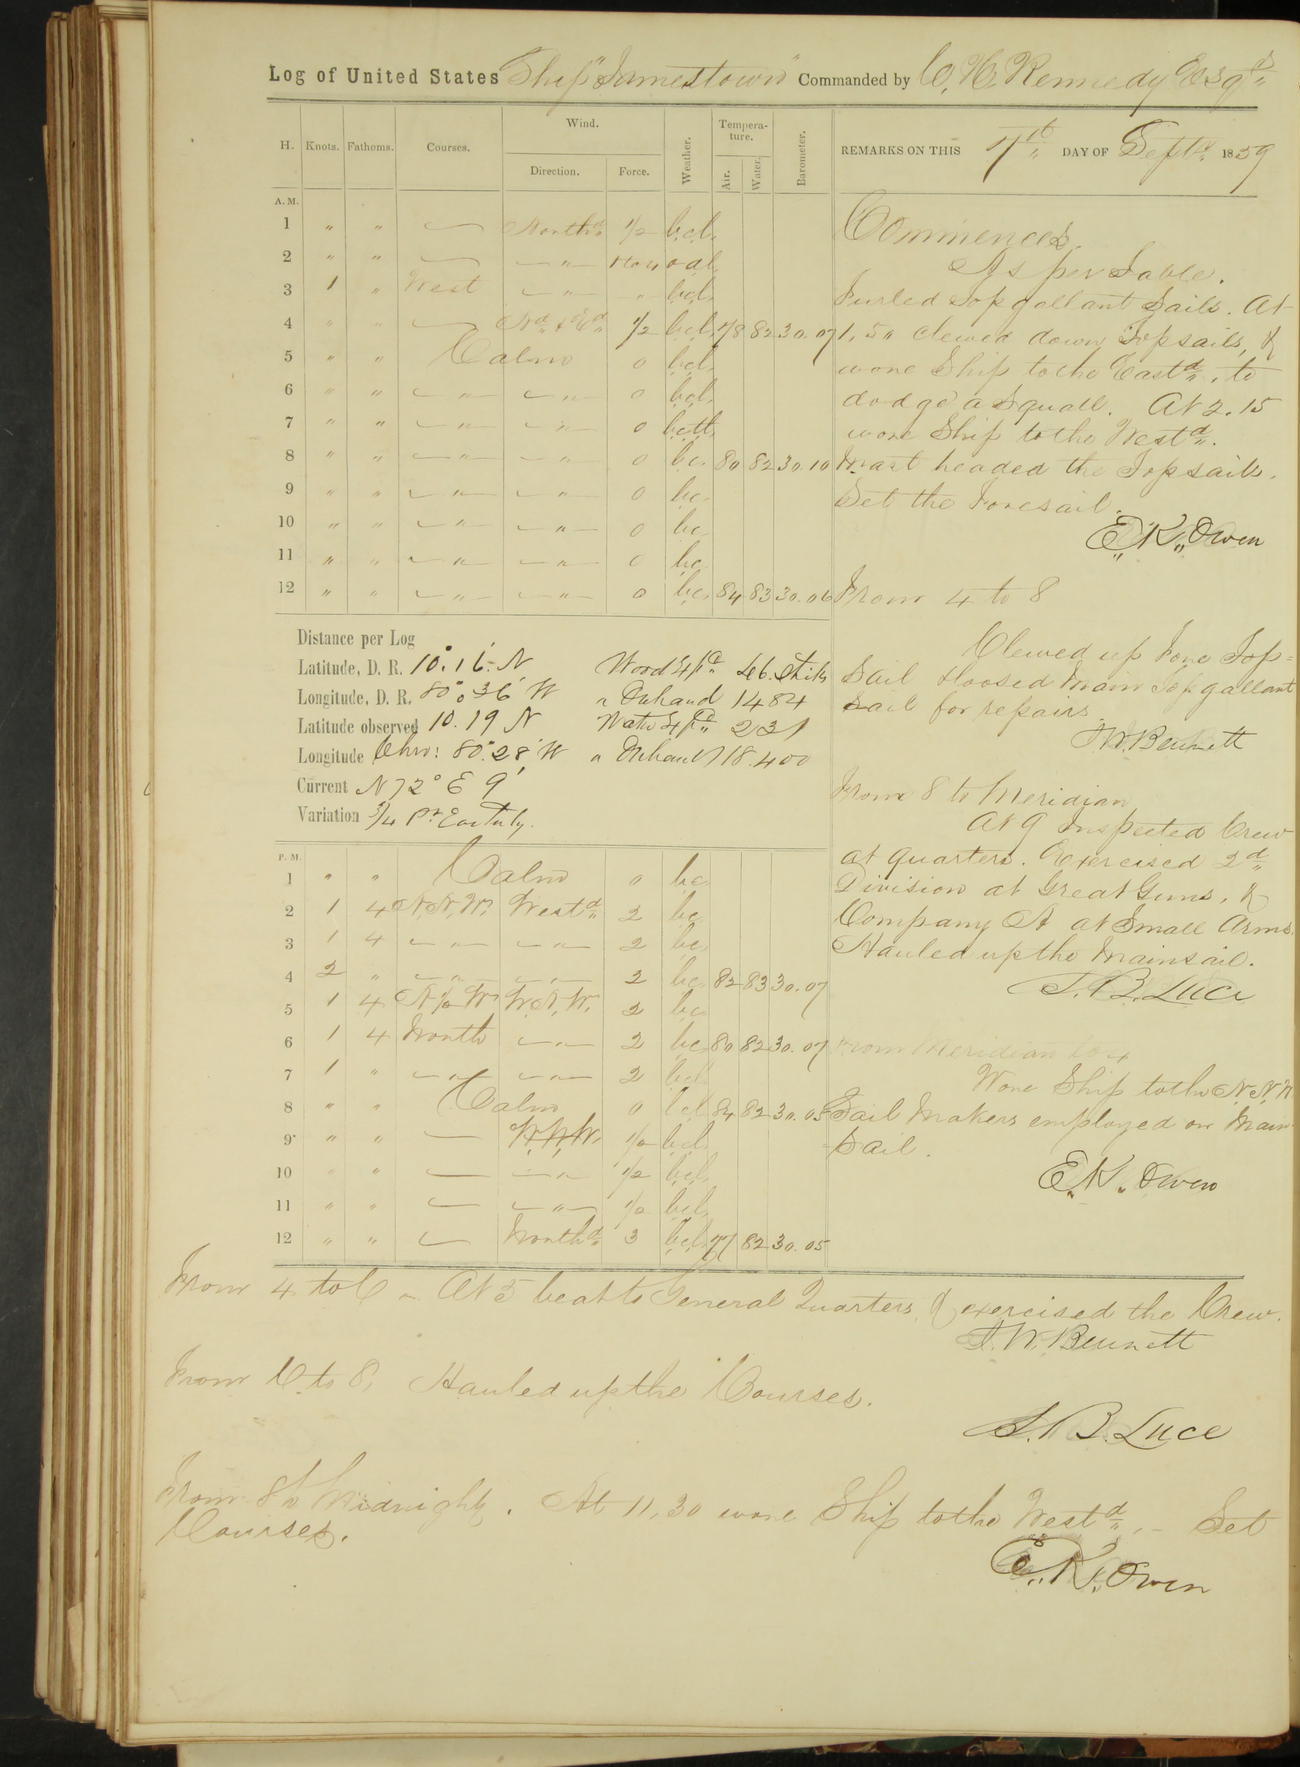 Log of United States Ship "Jamestown" Commanded by C. H. Kennedy Esqr.
H. Knots. Fathoms. Courses. Wind. Direction. Force. Weather. Tempera-ture. Air. Water. Barometer.
REMARKS ON THIS 7th DAY OF Septr. 1859
A. M.
1 " " — Northd. 1/2 b.c.l.
2 " " — — " —
3 1 " West — " — " b.c.l.
4 " " — Nd. & Ed. 1/2 b.c.l. 78 82 30.07
5 " " Calm 0 b.c.l.
6 " " — " — — " — 0 b.c.l.
7 " " — " — — " — 0
8 " " — " — — " — 0 b.c. 80 82 30.10
9 " " — " — — " — 0 b.c.
10 " " — " — — " — 0 b.c.
11 " " — " — — " — 0 b.c.
12 " " — " — — " — 0 b.c. 84 83 30.06
Commences
As per Table.
Furled Top gallant Sails. At
1,50 clewed down Topsails, &
wore Ship to the Eastd., to
dodge a Squall. At 2.15
wore Ship to the Westd.
Mast headed the Topsails.
Set the Foresail.
E. K. Owen
From 4 to 8
Clewed up Fore Top=
Sail & loosed Main Top gallant
sail for repairs.
J. W. Bennett
From 8 to Meridian
At 9 Inspected Crew
at quarters. Exercised 2d
Division at Great Guns, &
Company A at Small Arms.
Hauled up the Mainsail.
S. B. Luce
Distance per Log
Latitude, D. R. 10° 16' N Wood Expd. 46 Stiks
Longitude, D. R. 80° 36' W " Onhand 1484
Latitude observed 10. 19 N Water Expd. 231
Longitude Chro: 80° 28' W " Onhand 18.400
Current N 72° E 9'
Variation 3/4 Pt. Easterly.
P. M.
1 " " Calm " b.c.
2 1 4 N.N.W. Westd. 2 b.c.
3 1 4 — " — — " — 2 b.c.
4 2 " — " — — " — 2 b.c. 82 83 30.07
5 1 4 N by W W.N.W. 2 b.c.
6 1 4 North — " — 2 b.c. 80 82 30.07
7 1 " — " — — " — 2 b.c.l.
8 " " Calm 0 b.c.l. 84 82 30.05
9 " " — W.N.W. 1/2 b.c.l.
10 " " — — " — 1/2 b.c.l.
11 " " — — " — 1/2 b.c.l.
12 " " — Northd. 3 b.c.l. 77 82 30.05
From Meridian to 4
Wore Ship to the N.N.W.
Sail Makers employed on Main
Sail.
E. K. Owen
From 4 to 6 – At 5 beat to General Quarters, & exercised the Crew.
J. W. Bennett
From 6 to 8, Hauled up the Courses.
S. B. Luce
From 8 to Midnight. At 11,30 wore Ship to the Westd., – Set
Courses.
E. K. Owen